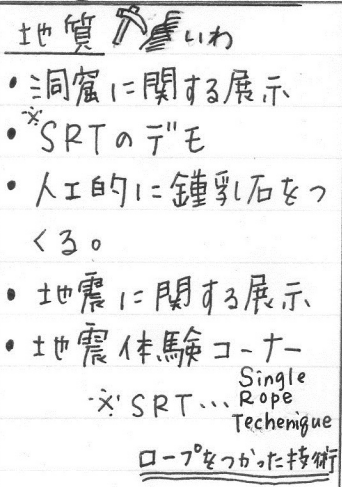 地質 いわ
・洞窟に関する展示
・※SRTのデモ
・人工的に鍾乳石をつ
くる。
・地震に関する展示
・地震体験コーナー
※SRT… Single
Rope
Techenique
ロープをつかった技術